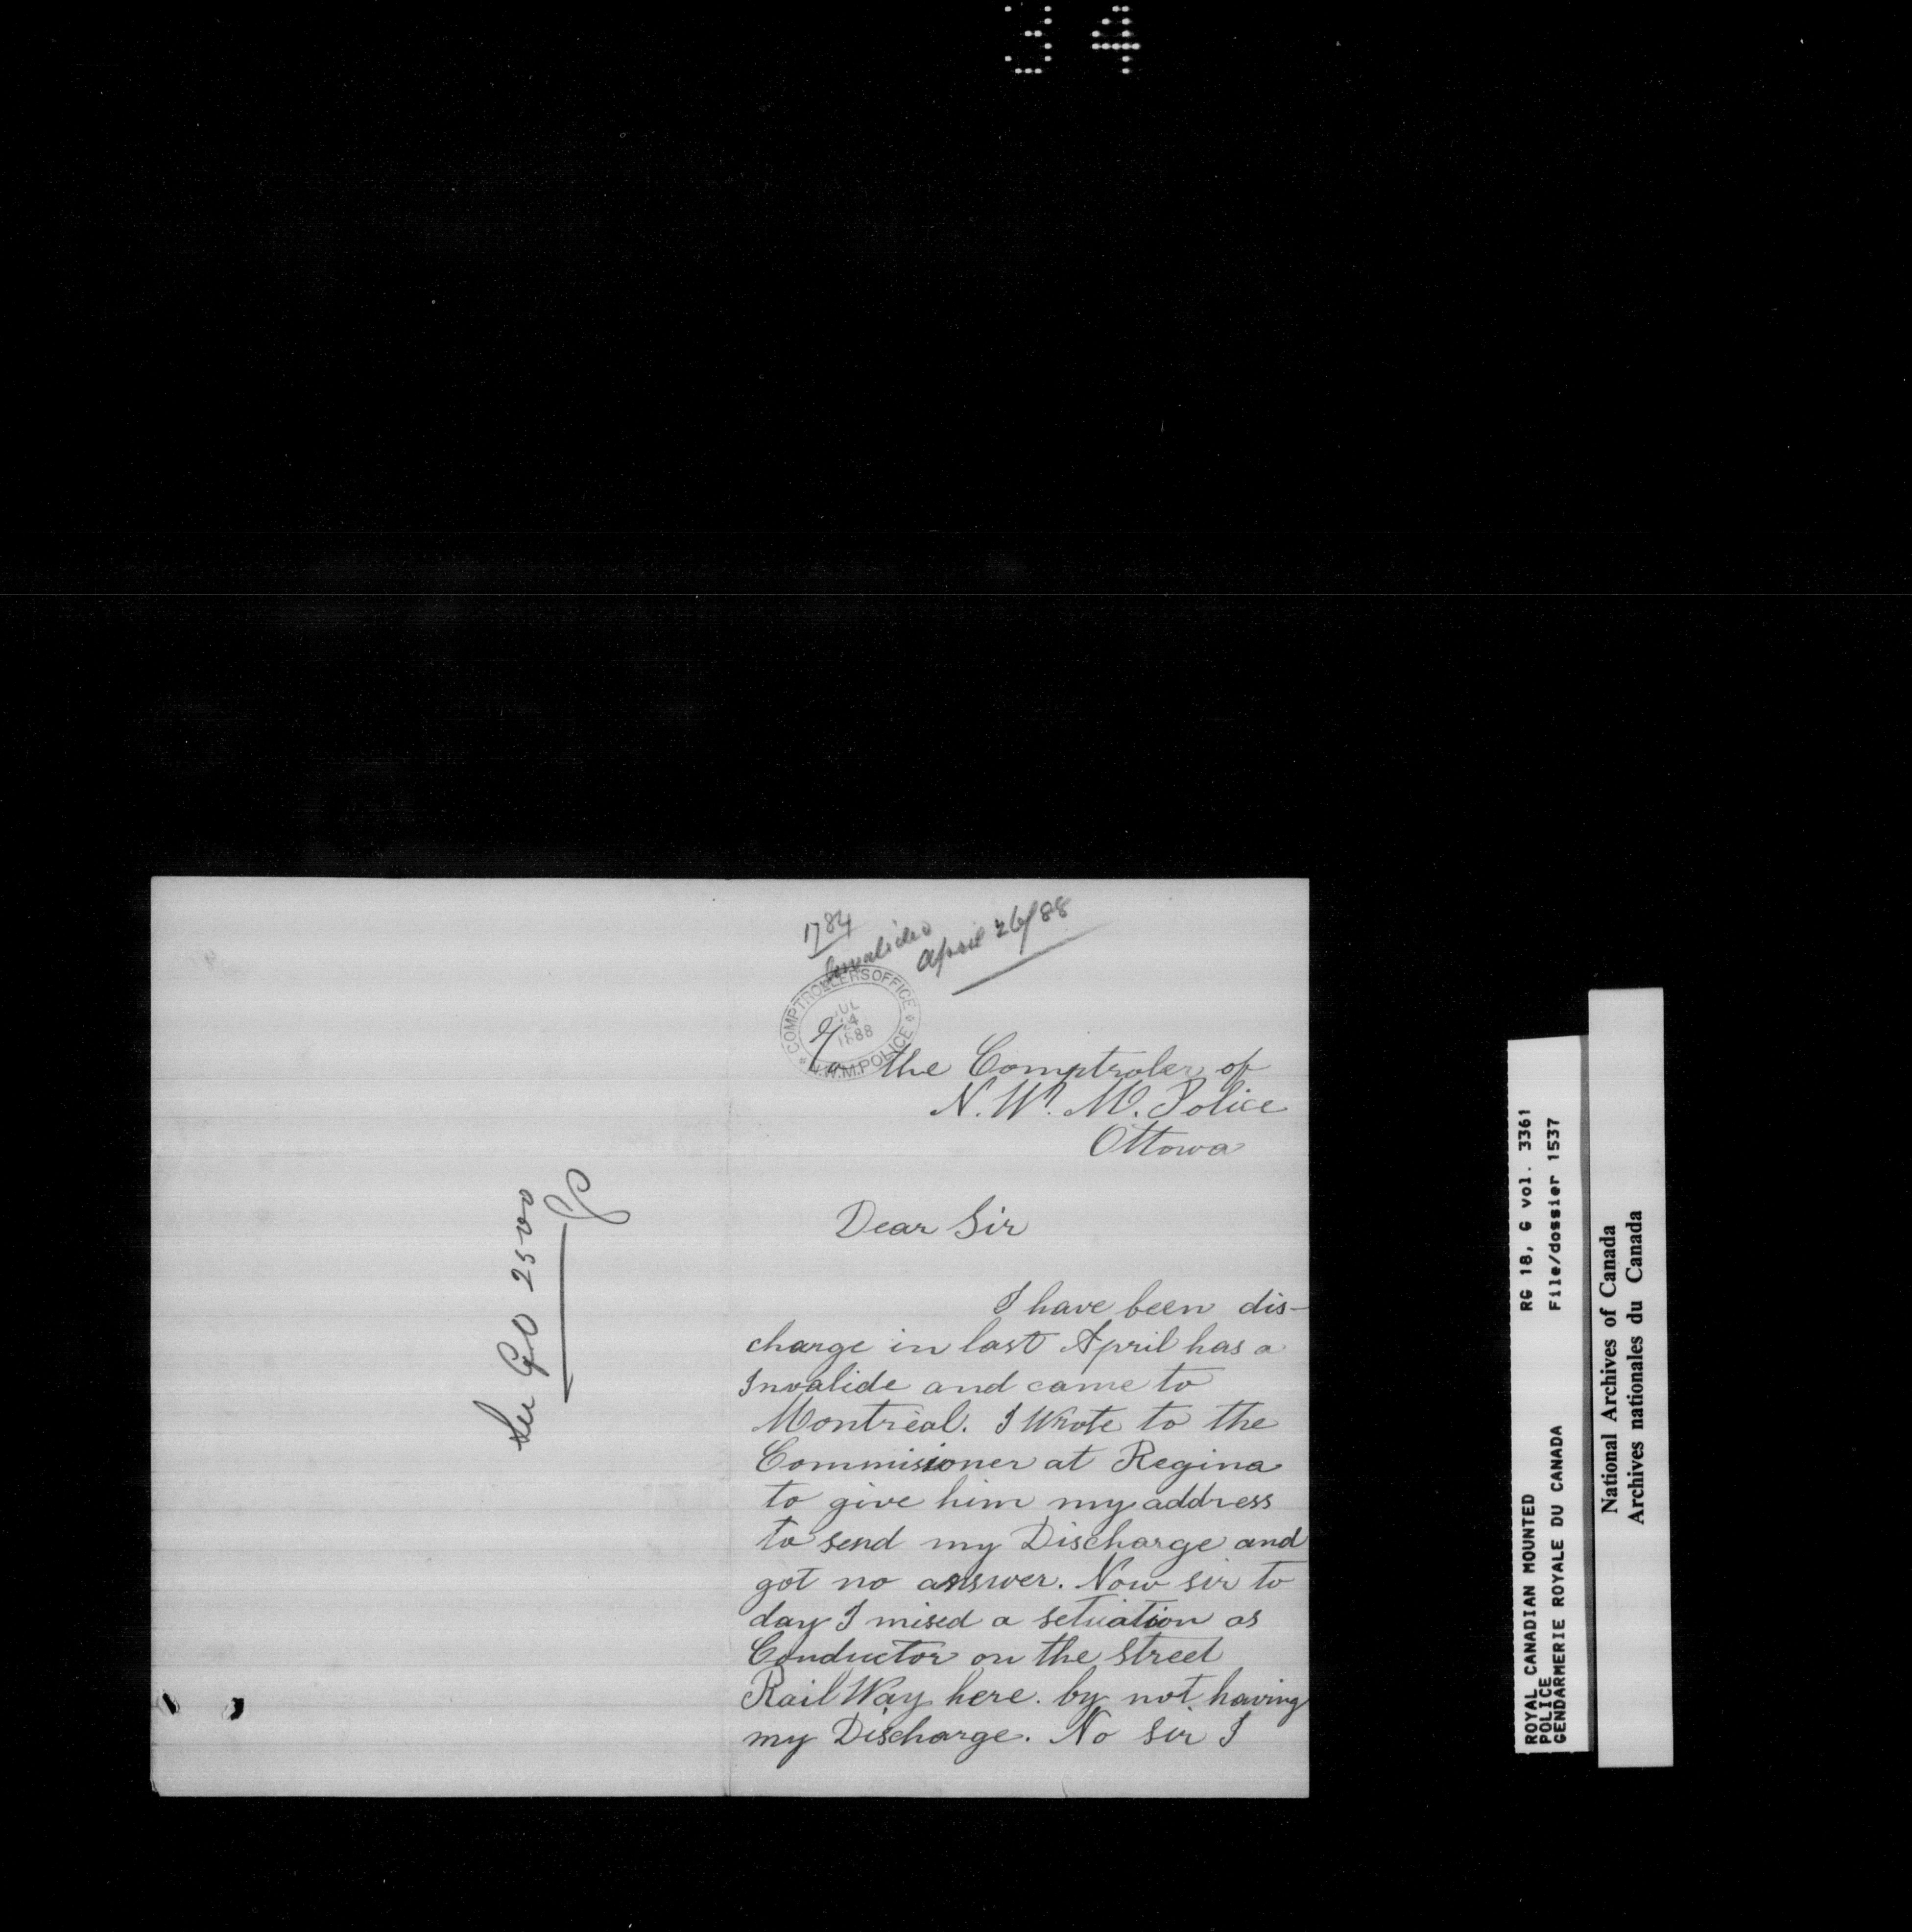 34
1784
Invalided
April 26/88
COMPTROLLERS OFFICE
JUL
24
1888
N.W.M. POLICE
To the Comptroler of
N. W. M. Police
Ottowa
Dear Sir
I have been dis-
charge in last April has a
Invalide and came to
Montréal. I Wrote to the
Commisioner at Regina
to give him my address
to send my Discharge and
got no answer. Now sir to
day I mised a setuation as
Conductor on the street
Rail Way here. by not having
my Discharge. No sir I
See GO 2500
ROYAL CANADIAN MOUNTED
POLICE
GENDARMERIE ROYALE DU CANADA
RG 18, G vol. 3361
File/dossier 1537
National Archives of Canada
Archives nationales du Canada